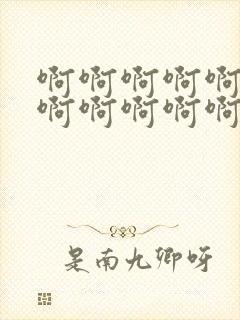 啊啊啊啊啊
啊啊啊啊啊
是南九卿呀